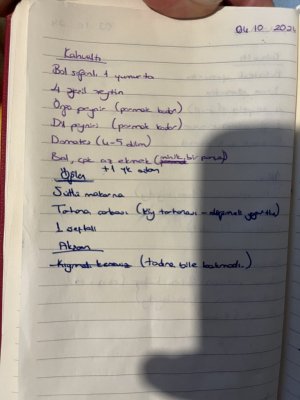 04.10 2024
Kahvaltı
Bol sıvanlı 1 yumurta
4 yeşil zeytin
Örgü peynir (parmak kadar)
Dil peyniri (parmak kadar)
Domates (4-5 dilim)
Bal, çok az ekmek (minik bir parça)
+1 yk
Öğlen
Sütlü makarna
Tarhana çorbası (Köy tarhanası - yoğurtlu)
1 şeftali
Akşam
Kıymalı (tadına bile bakmadı.)